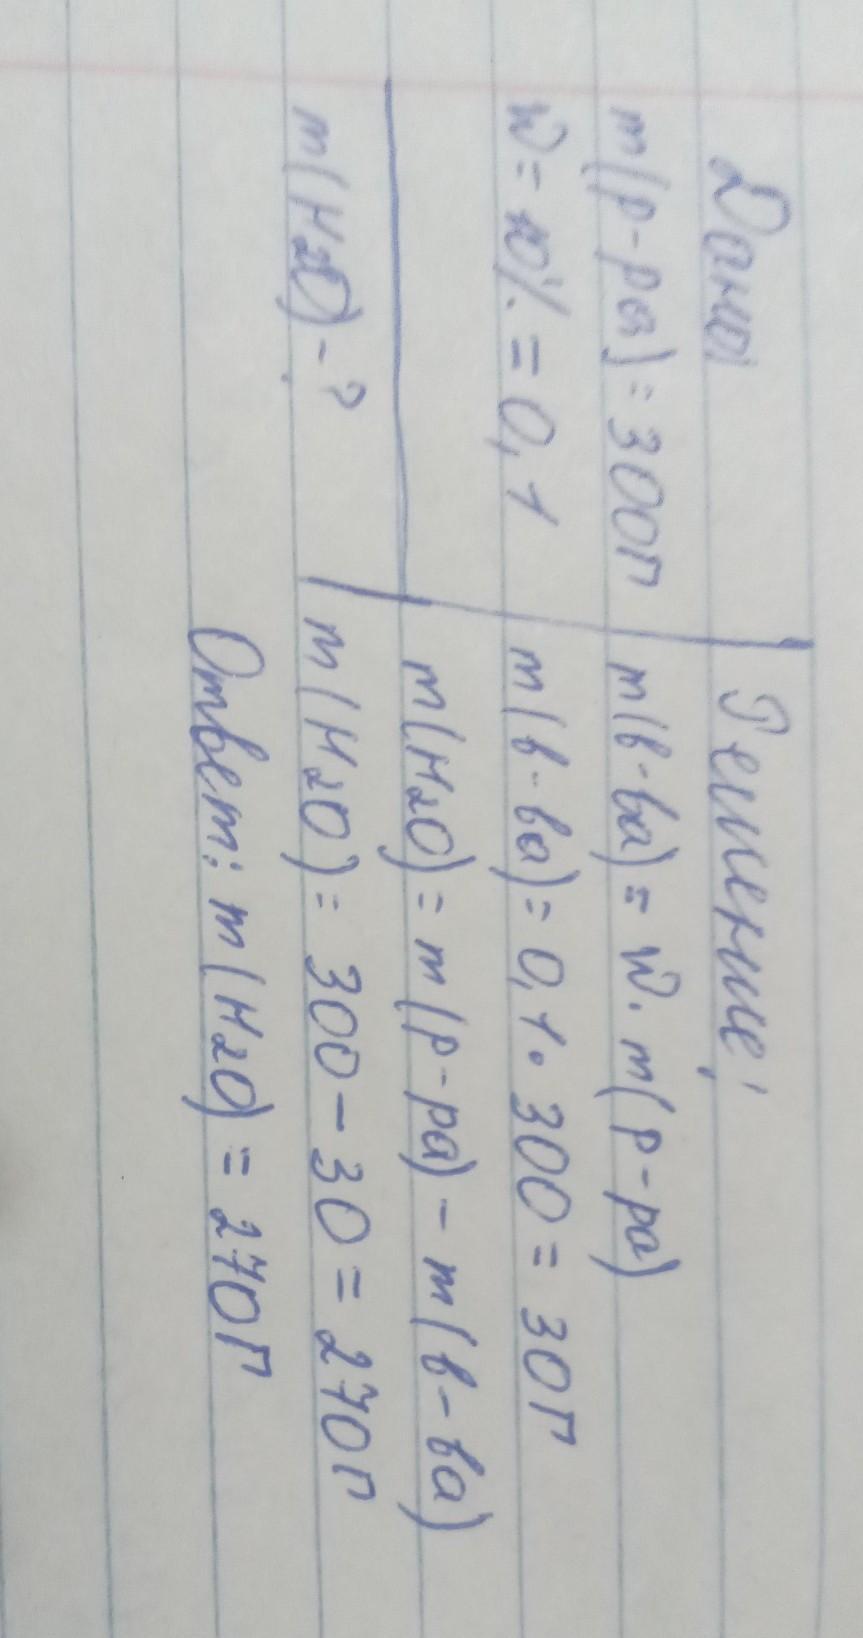 Дано:
m(р-ра) = 300г
w = 10% = 0,1
m(H2O) - ?
Решение:
m(в-ва) = w · m(р-ра)
m(в-ва) = 0,1 · 300 = 30г
m(H2O) = m(р-ра) - m(в-ва)
m(H2O) = 300 - 30 = 270г
Ответ: m(H2O) = 270г